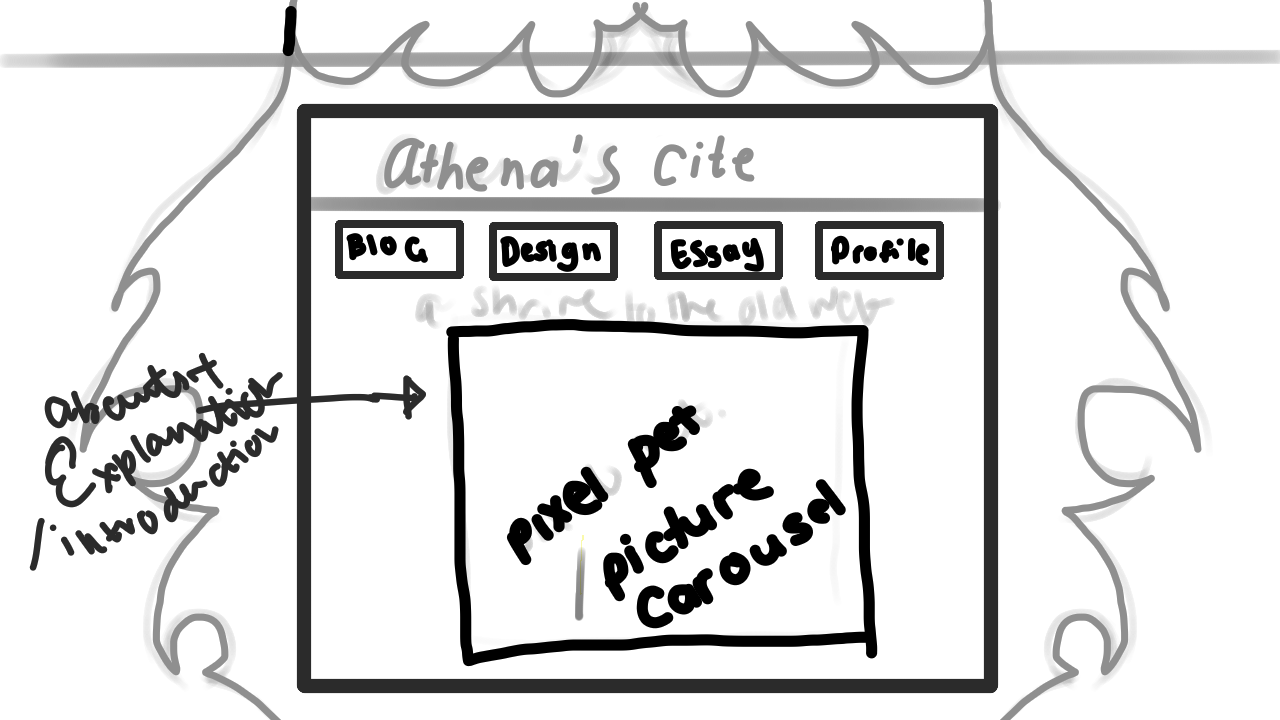 Athena's Cite
Blog
Design
Essay
Profile
a shrine to the old web
Explanation
/introduction
pixel pet
picture
Carousel